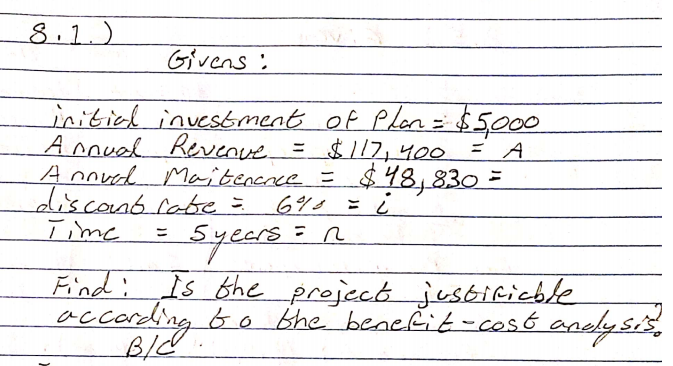 8.1.)
Givens:
initial investment of Plan = $5,000
Annual Revenue = $117,400 = A
Annual Maitenance = $48,830 =
discount rate = 6% = i
Time = 5 years = n
Find: Is the project justificable
according to the benefit-cost analysis?
B/C